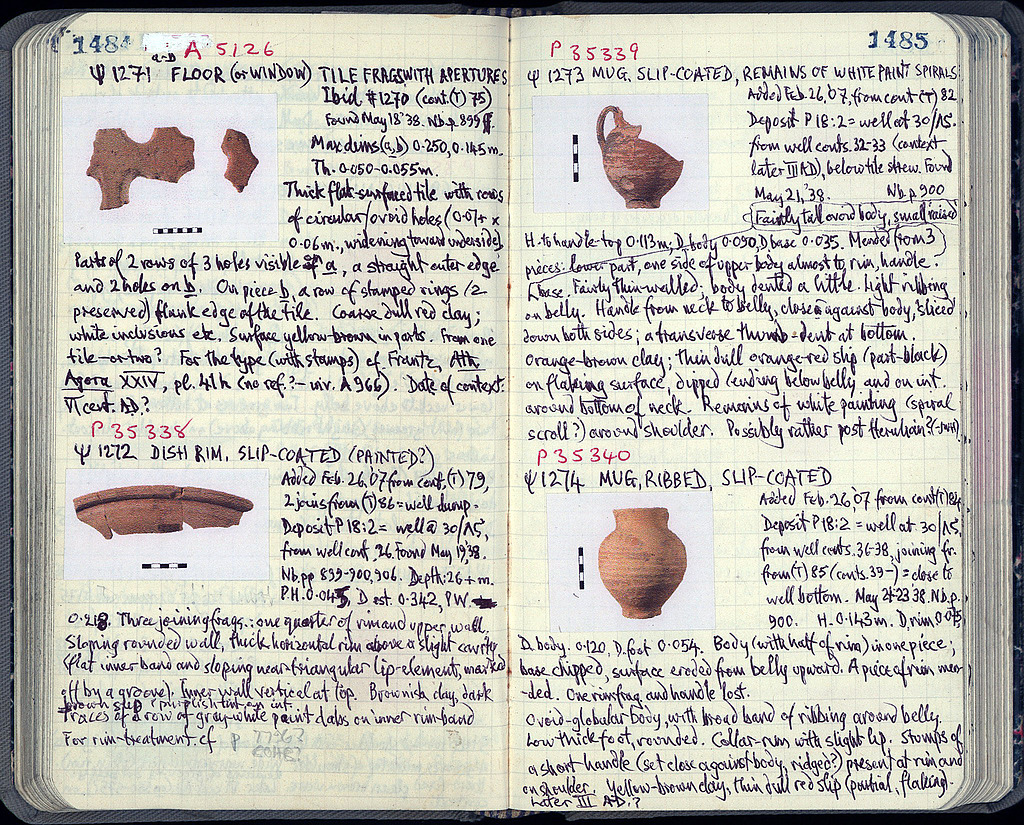 1484
a-b A 5126
Ψ 1271 FLOOR (or WINDOW) TILE FRAGS WITH APERTURES
Ibid #1270 (cont. (T) 75)
Found May 18 '38. Nb. p. 899
Max dims (a, b) 0.250, 0.145 m.
Th. 0.050-0.055 m.
Thick flat-surfaced tile with rows
of circular/ovoid holes (0.07+ x
0.06 m., widening toward underside).
Parts of 2 rows of 3 holes visible a, a straight outer edge
and 2 holes on b. On piece b, a row of stamped rings (2
preserved) flank edge of the tile. Coarse dull red clay;
white inclusions etc. Surface yellow-brown in parts. From one
tile - or two? For the type (with stamps) cf Frantz, Ath.
Agora XXIV, pl. 41 h (no ref.? - inv. A 966). Date of context.
VI cent. A.D.?
P 35338
Ψ 1272 DISH RIM, SLIP-COATED (PAINTED?)
Added Feb. 26, '07 from cont. (T) 79,
2 joins from (T) 86 = well dump.
Deposit P 18:2 = well @ 30/ΛΣ,
from well cont. 26. Found May 19 '38.
Nb. pp 899-900, 906. Depth: 26 + m.
P.H. 0.045, D est. 0.342, P W.
0.218. Three joining frags.: one quarter of rim and upper wall.
Sloping rounded wall, thick horizontal rim above a slight cavity
(flat inner band and sloping near-triangular lip-element, marked
off by a groove). Inner wall vertical at top. Brownish clay, dark
brown slip, purplish tint on int.
Traces of a row of gray-white paint dabs on inner rim-band
For rim-treatment cf P
1485
P 35339
Ψ 1273 MUG, SLIP-COATED, REMAINS OF WHITE PAINT SPIRALS
Added Feb. 26, '07, from cont (T) 82
Deposit P 18:2 = well at 30/ΛΣ.
from well conts. 32-33 (context
later III A.D.), below tile strew. Found
May 21, '38. Nb. p. 900
Fairly tall ovoid body, small raised
H. to handle-top 0.113 m; D. body 0.090, D base 0.035. Mended from 3
pieces: lower part, one side of upper body almost to rim, handle.
base. Fairly thin-walled; body dented a little. Light ribbing
on belly. Handle from neck to belly, close against body, sliced
down both sides; a transverse thumb-dent at bottom.
Orange-brown clay; thin dull orange-red slip (part-black)
on flaking surface, dipped ending below belly and on int.
around bottom of neck. Remains of white painting (spiral
scroll?) around shoulder. Possibly rather post Herulian?
P 35340
Ψ 1274 MUG, RIBBED, SLIP-COATED
Added Feb. 26, '07 from cont (T) 84
Deposit P 18:2 = well at 30/ΛΣ,
from well conts. 36-38, joining fr.
from (T) 85 (conts. 39-) = close to
well bottom. May 21-23 38. Nb. p.
900. H. 0.143 m. D, rim 0.075,
D. body. 0.120, D. foot 0.054. Body (with half of rim) in one piece;
base chipped, surface eroded from belly upward. A piece of rim men-
ded. One rim frag and handle lost.
Ovoid-globular body, with broad band of ribbing around belly.
Low thick foot, rounded. Collar-rim with slight lip. Stumps of
a short handle (set close against body, ridged?) present at rim and
on shoulder. Yellow-brown clay, thin dull red slip (partial, flaking).
Later III A.D.?